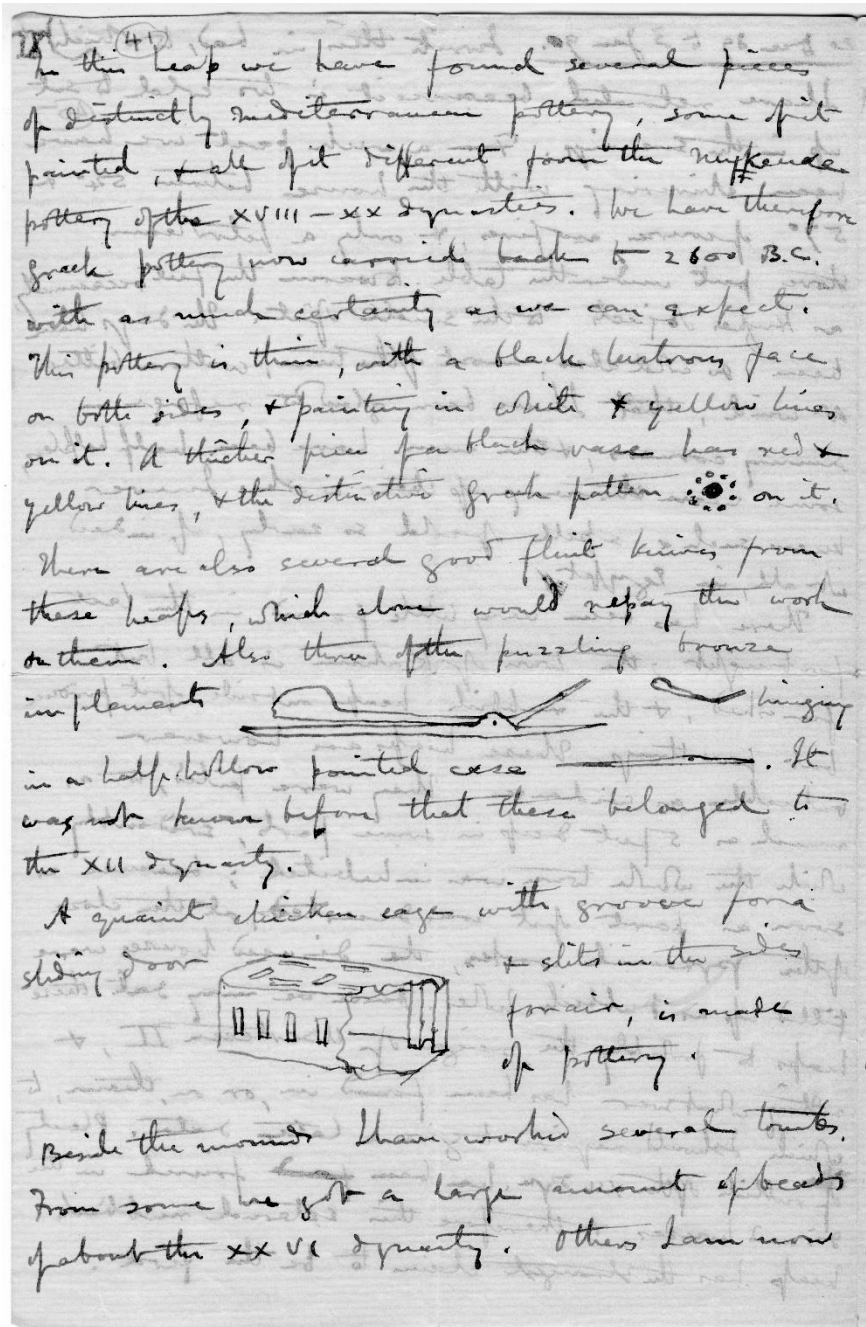 41
In this heap we have found several pieces
of distinctly mediterranean pottery, some of it
painted, & all of it different from the mykenae
pottery of the XVIII – XX dynasties. We have therefore
greek pottery now carried back to 2600 B.C.
with as much certainty as we can expect.
This pottery is thin, with a black lustrous face
on both sides, & painting in white & yellow lines
on it. A thicker piece of a black vase has red &
yellow lines, & the distinctive greek pattern on it.
There are also several good flint knives from
these heaps, which alone would repay the work
on them. Also three of the puzzling bronze
implements hinging
in a half-hollow pointed case . It
was not known before that these belonged to
the XII dynasty.
A quaint chicken cage with groove for a
sliding door & slits in the sides
for air, is made
of pottery.
Beside the mounds I have worked several tombs.
From some we got a large amount of beads
of about the XXVI dynasty. Others I am now